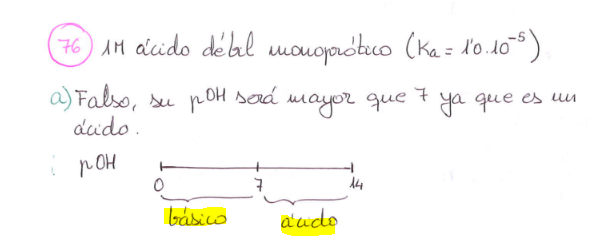 76 1M ácido débil monoprótico (Ka = 1'0.10⁻⁵)
a) Falso, su pOH será mayor que 7 ya que es un
ácido.
pOH
0 7 14
básico ácido